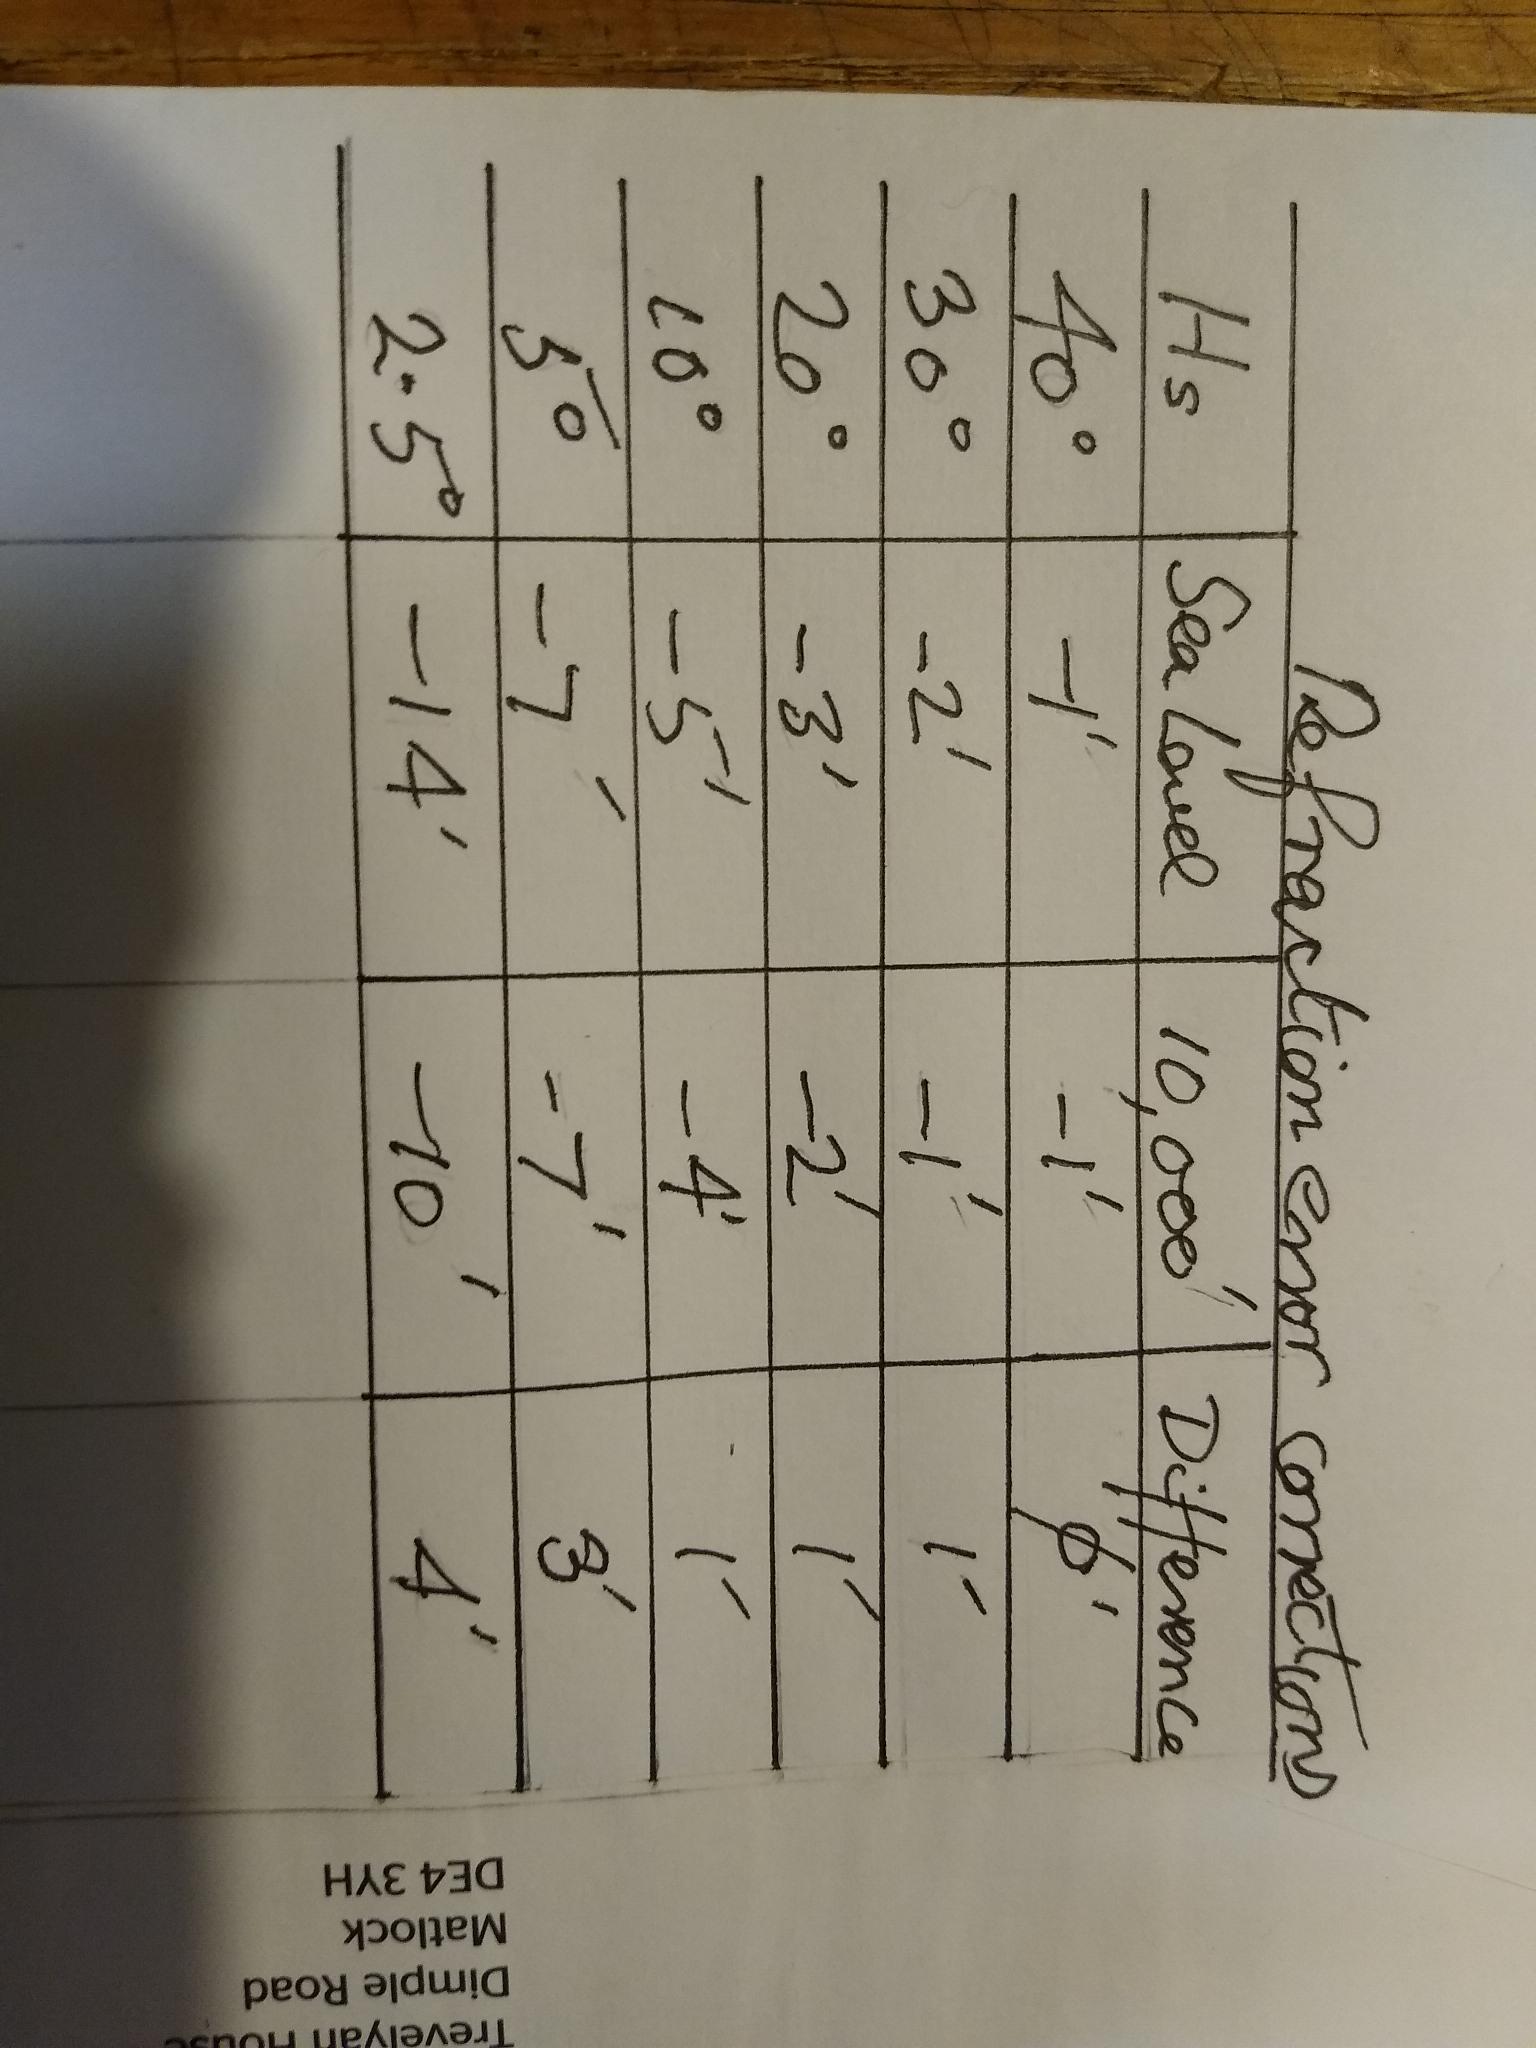 Refraction error corrections
Hs Sea Level 10,000' Difference
40° -1' -1' 0'
30° -2' -1' 1'
20° -3' -2' 1'
10° -5' -4' 1'
5° -7' -7' 3'
2.5° -14' -10' 4'
Trevelyan House
Dimple Road
Matlock
DE4 3YH